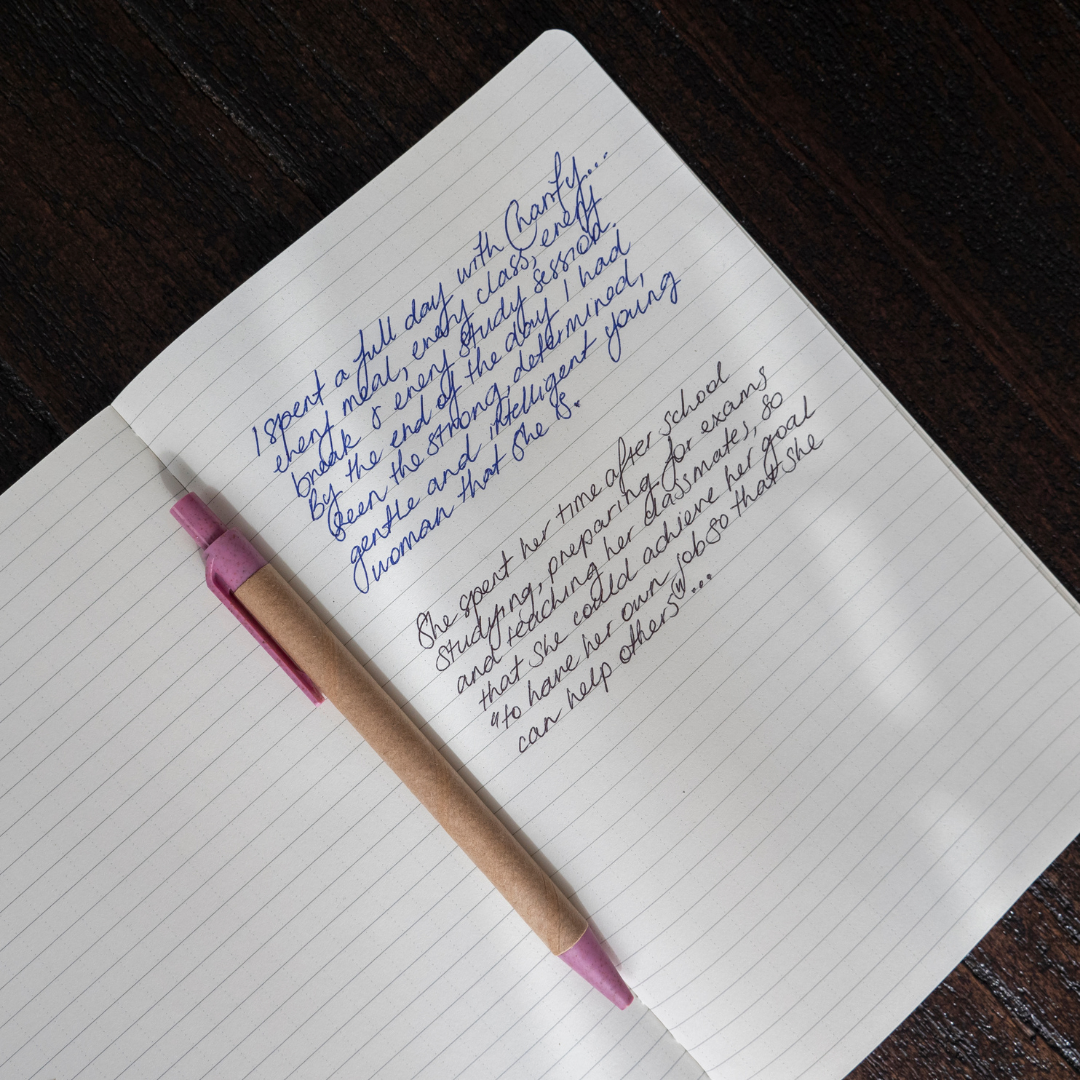 I spent a full day with Charity...
every meal, every class, every
break & every study session.
By the end of the day I had
seen the strong, determined,
gentle and intelligent young
woman that she is.
She spent her time after school
studying, preparing for exams
and teaching her classmates, so
that she could achieve her goal
"to have her own job so that she
can help others"...